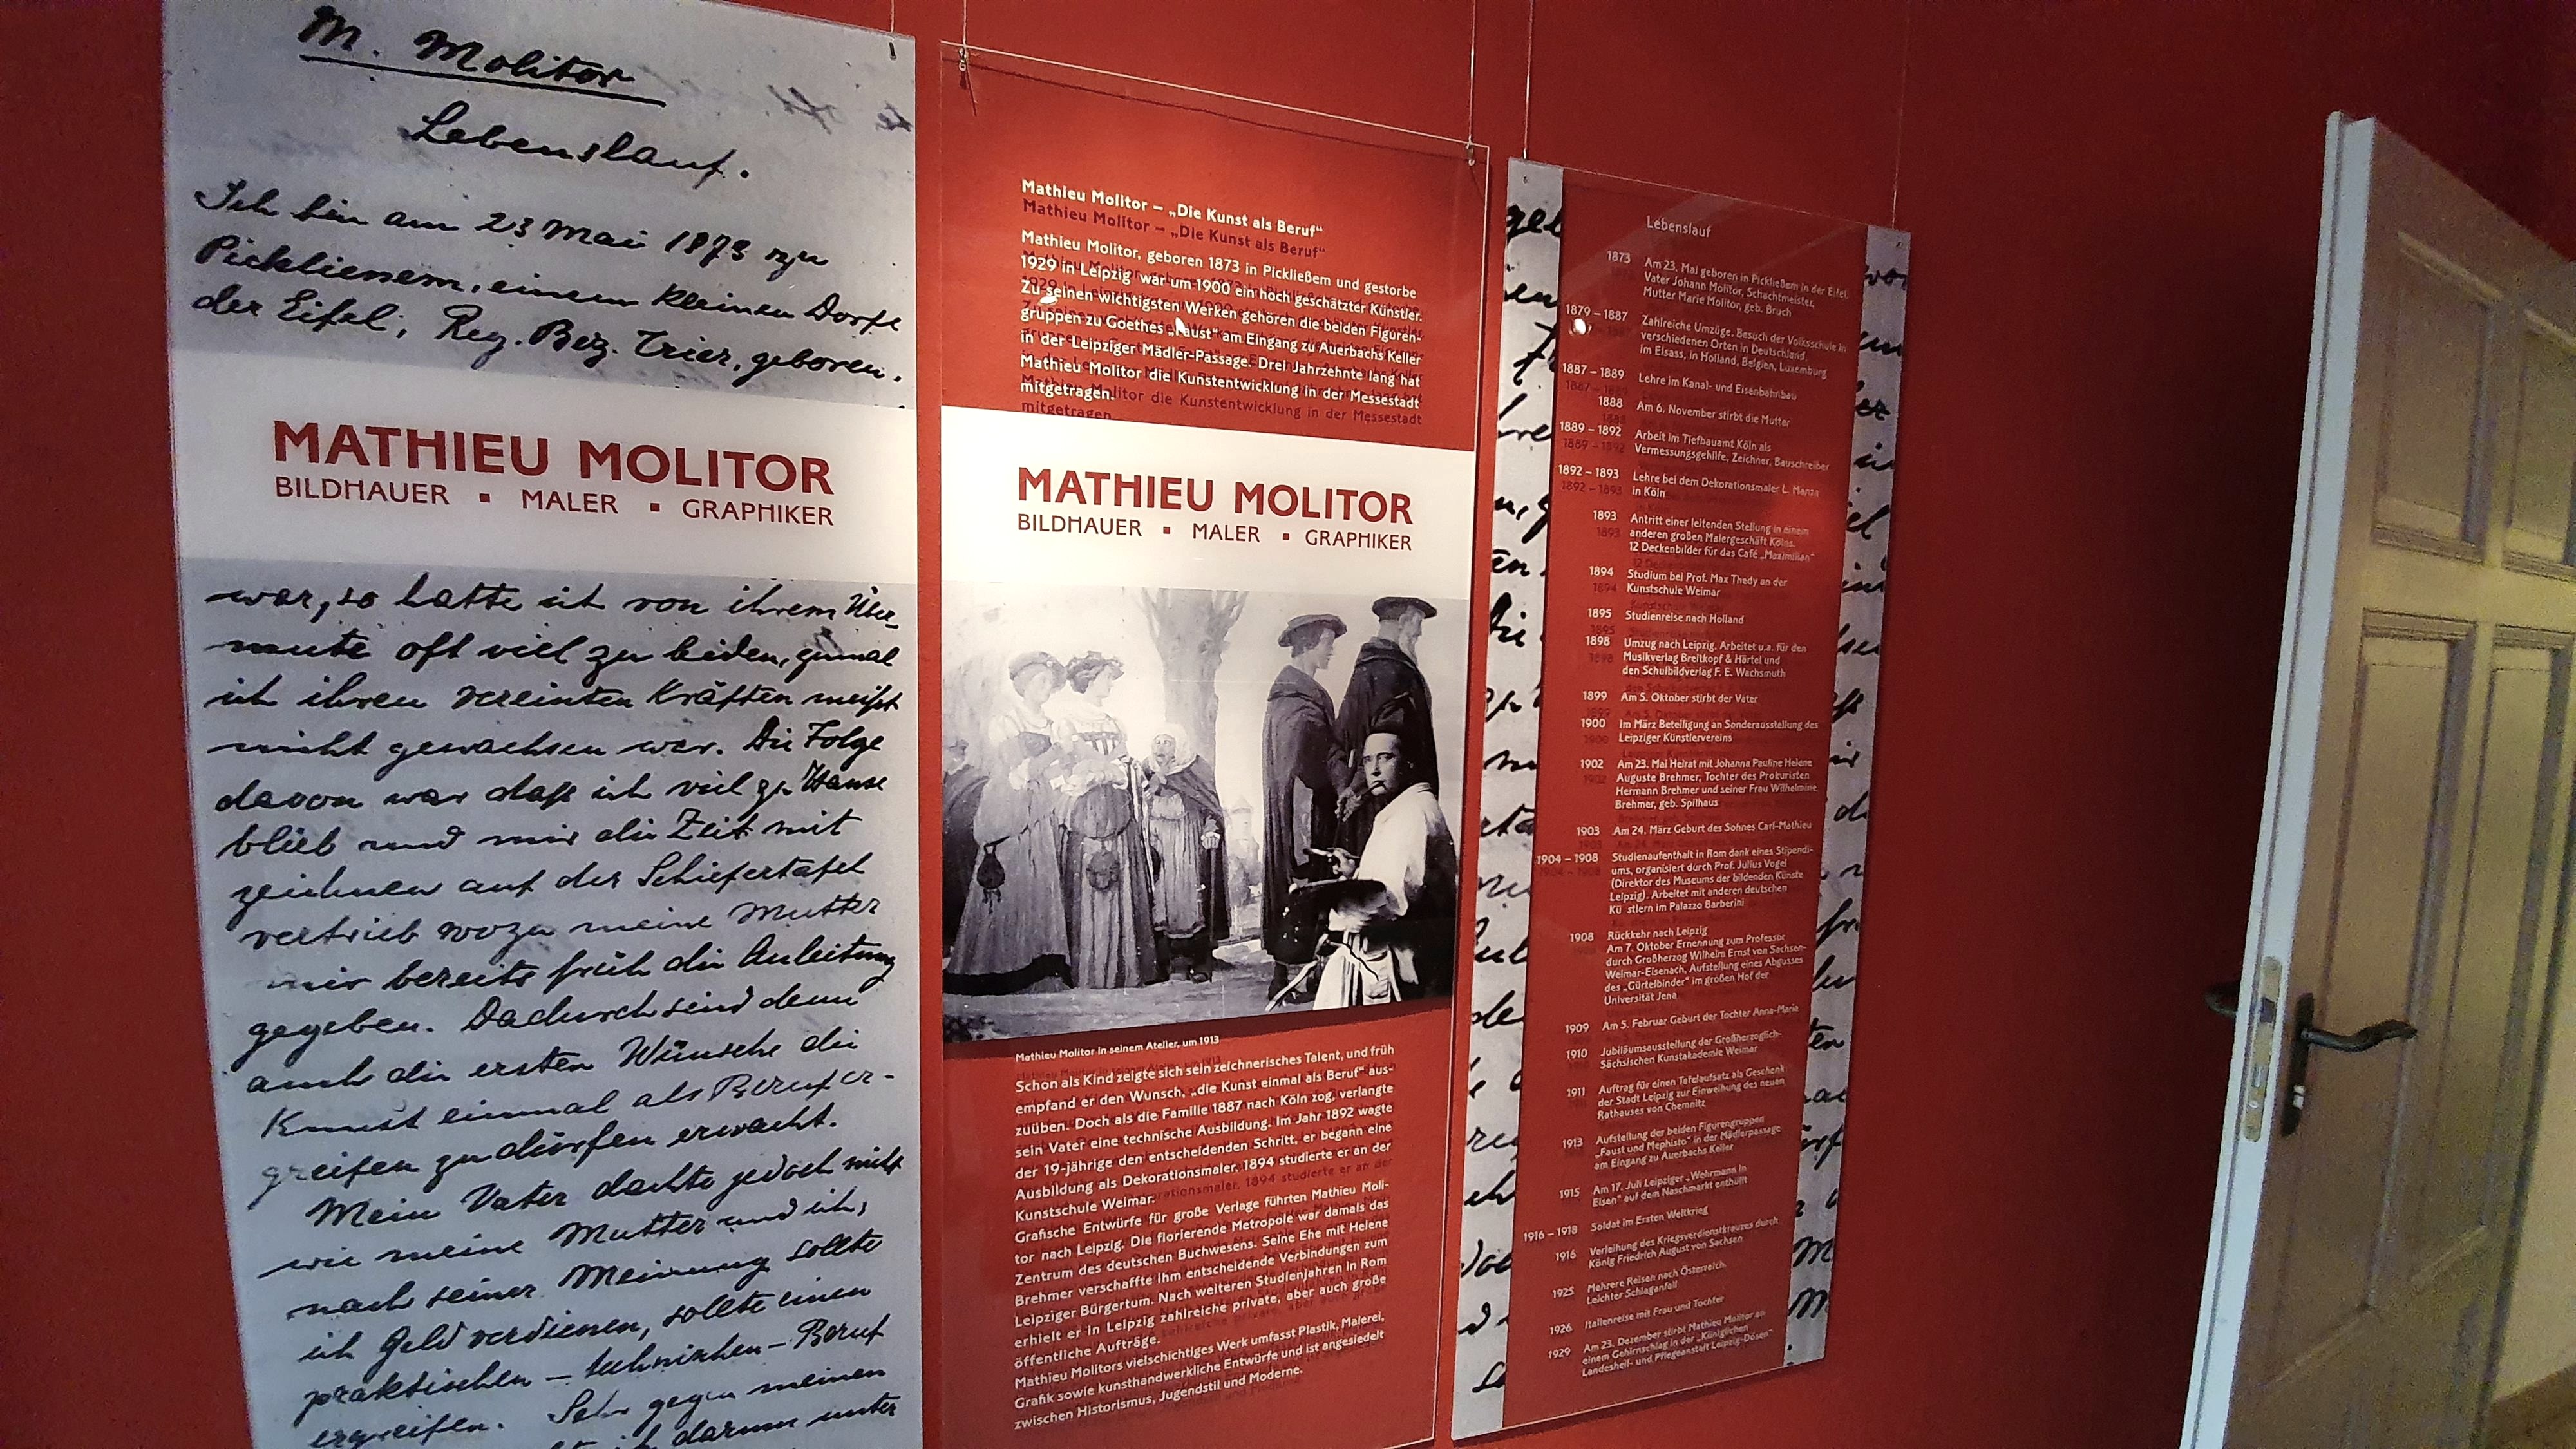 M. Molitor
Lebenslauf.
Ich bin am 23 Mai 1873 zu
Pickliessem, einem kleinen Dorfe
der Eifel, Reg. Bez. Trier, geboren.
MATHIEU MOLITOR
BILDHAUER ▪ MALER ▪ GRAPHIKER
war, so hatte ich von ihrem Über-
mute oft viel zu leiden, zumal
ich ihren vereinten Kräften meist
nicht gewachsen war. Die Folge
davon war daß ich viel zu Hause
blieb und mir die Zeit mit
zeichnen auf der Schiefertafel
vertrieb wozu meine Mutter
mir bereits früh die Anleitung
gegeben. Dadurch sind denn
auch die ersten Wünsche die
Kunst einmal als Beruf er-
greifen zu dürfen erwacht.
Mein Vater dachte jedoch nicht
wie meine Mutter und ich,
nach seiner Meinung sollte
ich Geld verdienen, sollte einen
praktischen – technischen – Beruf
ergreifen. Sehr gegen meinen
ich darum unter
Mathieu Molitor – „Die Kunst als Beruf“
Mathieu Molitor, geboren 1873 in Pickließem und gestorbe
1929 in Leipzig war um 1900 ein hoch geschätzter Künstler.
Zu seinen wichtigsten Werken gehören die beiden Figuren-
gruppen zu Goethes „Faust“ am Eingang zu Auerbachs Keller
in der Leipziger Mädler-Passage. Drei Jahrzehnte lang hat
Mathieu Molitor die Kunstentwicklung in der Messestadt
mitgetragen.
MATHIEU MOLITOR
BILDHAUER ▪ MALER ▪ GRAPHIKER
Mathieu Molitor in seinem Atelier, um 1913
Schon als Kind zeigte sich sein zeichnerisches Talent, und früh
empfand er den Wunsch, „die Kunst einmal als Beruf“ aus-
zuüben. Doch als die Familie 1887 nach Köln zog, verlangte
sein Vater eine technische Ausbildung. Im Jahr 1892 wagte
der 19-jährige den entscheidenden Schritt, er begann eine
Ausbildung als Dekorationsmaler, 1894 studierte er an der
Kunstschule Weimar.
Grafische Entwürfe für große Verlage führten Mathieu Moli-
tor nach Leipzig. Die florierende Metropole war damals das
Zentrum des deutschen Buchwesens. Seine Ehe mit Helene
Brehmer verschaffte ihm entscheidende Verbindungen zum
Leipziger Bürgertum. Nach weiteren Studienjahren in Rom
erhielt er in Leipzig zahlreiche private, aber auch große
öffentliche Aufträge.
Mathieu Molitors vielschichtiges Werk umfasst Plastik, Malerei,
Grafik sowie kunsthandwerkliche Entwürfe und ist angesiedelt
zwischen Historismus, Jugendstil und Moderne.
Lebenslauf
1873 Am 23. Mai geboren in Pickließem in der Eifel.
Vater Johann Molitor, Schachtmeister,
Mutter Marie Molitor, geb. Bruch
1879 – 1887 Zahlreiche Umzüge. Besuch der Volksschule in
verschiedenen Orten in Deutschland,
im Elsass, in Holland, Belgien, Luxemburg
1887 – 1889 Lehre im Kanal- und Eisenbahnbau
1888 Am 6. November stirbt die Mutter
1889 – 1892 Arbeit im Tiefbauamt Köln als
Vermessungsgehilfe, Zeichner, Bauschreiber
1892 – 1893 Lehre bei dem Dekorationsmaler L. Manza
in Köln
1893 Antritt einer leitenden Stellung in einem
anderen großen Malergeschäft Kölns.
12 Deckenbilder für das Café „Maximilian“
1894 Studium bei Prof. Max Thedy an der
Kunstschule Weimar
1895 Studienreise nach Holland
1898 Umzug nach Leipzig. Arbeitet u.a. für den
Musikverlag Breitkopf & Härtel und
den Schulbildverlag F. E. Wachsmuth
1899 Am 5. Oktober stirbt der Vater
1900 Im März Beteiligung an Sonderausstellung des
Leipziger Künstlervereins
1902 Am 23. Mai Heirat mit Johanna Pauline Helene
Auguste Brehmer, Tochter des Prokuristen
Hermann Brehmer und seiner Frau Wilhelmine
Brehmer, geb. Spilhaus
1903 Am 24. März Geburt des Sohnes Carl-Mathieu
1904 – 1908 Studienaufenthalt in Rom dank eines Stipendi-
ums, organisiert durch Prof. Julius Vogel
(Direktor des Museums der bildenden Künste
Leipzig). Arbeitet mit anderen deutschen
Kü stlern im Palazzo Barberini
1908 Rückkehr nach Leipzig
Am 7. Oktober Ernennung zum Professor
durch Großherzog Wilhelm Ernst von Sachsen-
Weimar-Eisenach, Aufstellung eines Abgusses
des „Gürtelbinder“ im großen Hof der
Universität Jena
1909 Am 5. Februar Geburt der Tochter Anna-Marie
1910 Jubiläumsausstellung der Großherzoglich-
Sächsischen Kunstakademie Weimar
1911 Auftrag für einen Tafelaufsatz als Geschenk
der Stadt Leipzig zur Einweihung des neuen
Rathauses von Chemnitz
1913 Aufstellung der beiden Figurengruppen
„Faust und Mephisto“ in der Mädlerpassage
am Eingang zu Auerbachs Keller
1915 Am 17. Juli Leipziger „Wehrmann in
Eisen“ auf dem Naschmarkt enthüllt
1916 – 1918 Soldat im Ersten Weltkrieg
1916 Verleihung des Kriegsverdienstkreuzes durch
König Friedrich August von Sachsen
1925 Mehrere Reisen nach Österreich.
Leichter Schlaganfall
1926 Italienreise mit Frau und Tochter
1929 Am 23. Dezember stirbt Mathieu Molitor an
einem Gehirnschlag in der „Königlichen
Landesheil- und Pflegeanstalt Leipzig-Dösen“